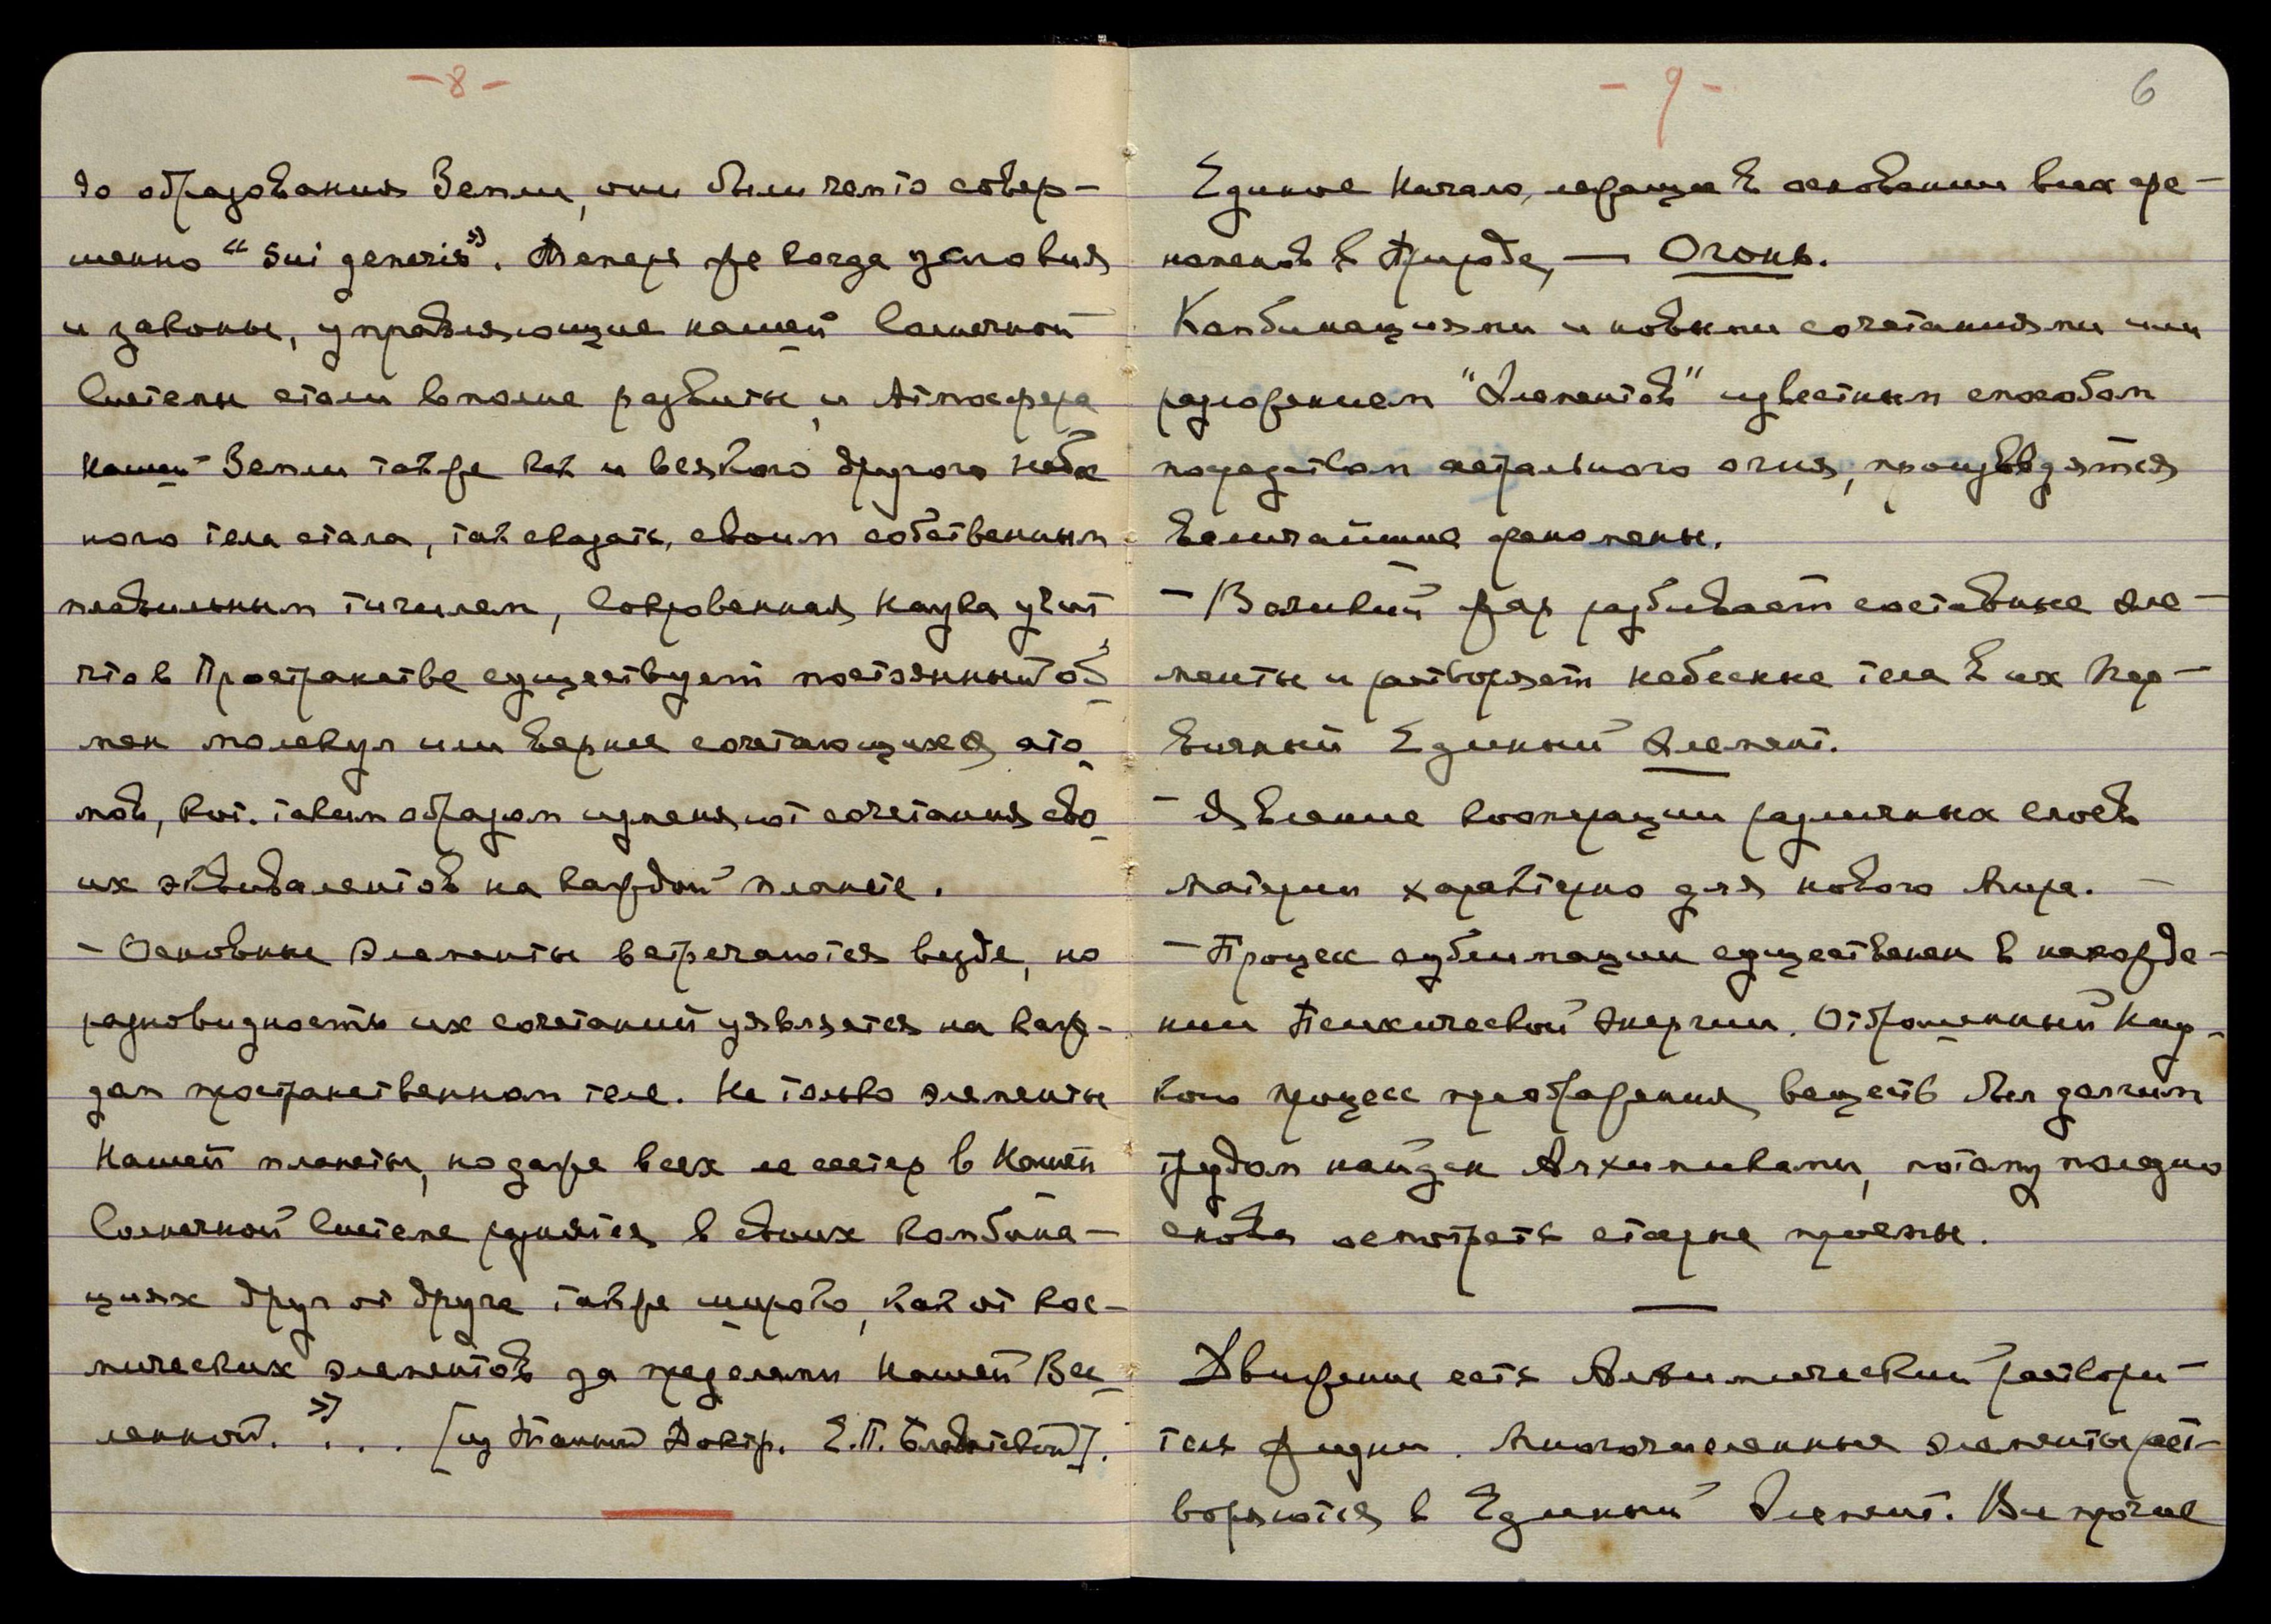 -8-
до образования Земли, они были чем то совер-
шенно “sui generis”. Теперь же когда условия
и законы, управляющие нашей Солнечной
Системы стали вполне развиты, и Атмосфера
нашей Земли так же как и всякого другого небес
ного тела стала, так сказать, своим собственным
плавильным тигилем, Сокровенная Наука учит
что в Пространстве существует постоянный об
мен молекул или вернее сочетающихся ато
мов, кот. таким образом изменяют сочетания сво
их эквивалентов на каждой планете.
- Основные Элементы встречаются везде, но
разновидность их сочетаний уявляется на каж-
дом пространственном теле. Не только элементы
нашей планеты, но даже всех ее сестер в нашей
Солнечной Системе разнятся в своих комбина-
циях друг от друга так же широко, как от Кос-
мических элементов за пределами нашей Все
ленной.” ... [из Тайной Доктр. Е.П. Блаватской].
- 9 -
6
Единое Начало, лежащее в основании всех фе-
номенов в Природе, — Огонь.
Комбинациями и новыми сочетаниями или
разложением “Элементов” известным способом
посредством астрального огня, производятся
величайшие феномены.
- Великий жар разбивает составные эле-
менты и растворяет небесные тела в их Пер-
вичный Единый Элемент.
- Явление кооперации различных слоев
материи характерно для нового Мира. -
- Процесс сублимации существенен в нахожде-
нии Психической Энергии. Отброшенный Нау-
кою процесс преображения веществ был долгим
трудом найден Алхимиками, потому полезно
снова осмотреть старые приемы.
Движение есть Алхимический раствори-
тель Жизни. Многочисленные элементы раст-
воряются в Единый Элемент. Все прочие